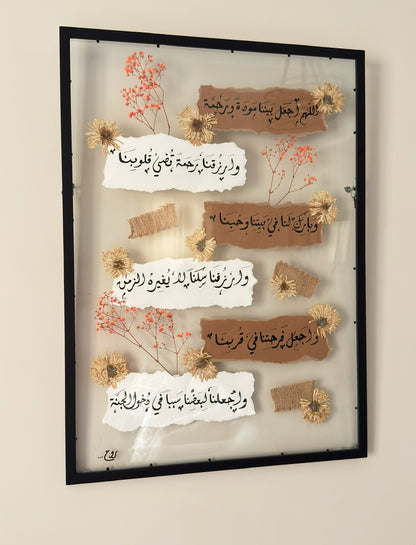 اللهم اجعل بيننا مودة ورحمة
وارزقنا رحمة تضيء قلوبنا
وبارك لنا في بيتنا وحبنا
وارزقنا سكنا لا يغيره الزمن
واجعل فرحتنا في قربنا
واجعلنا لبعضنا سببا في دخول الجنة
روح...